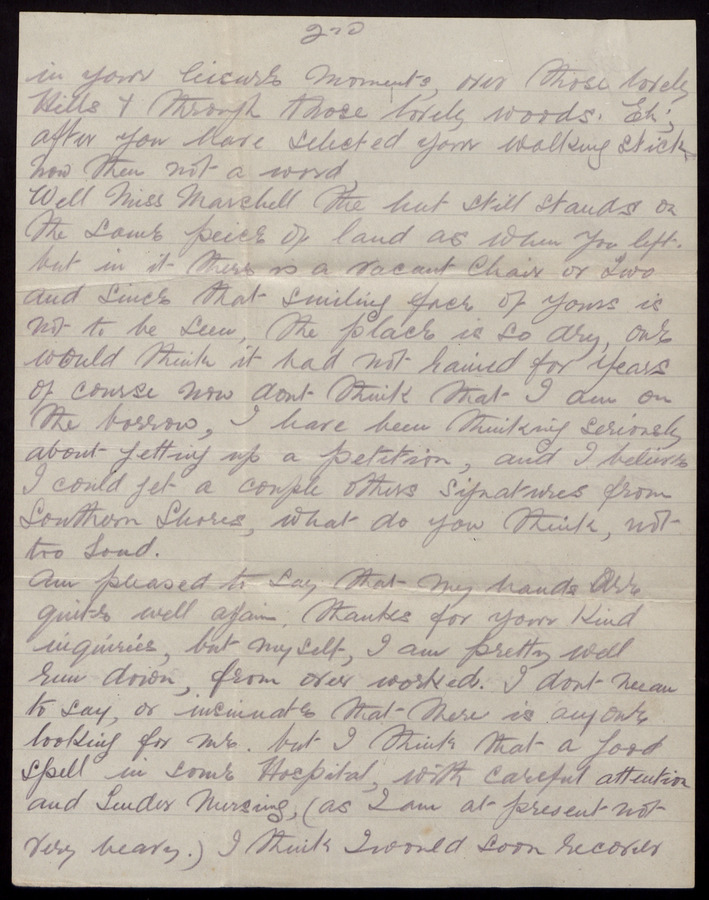 2nd
in your leisure moments, over those lovely
Hills & through those lovely woods. Eh;
after you have selected your walking stick,
now then not a word,
Well Miss Marshell the hut still stands on
the same peice of land as when you left.
but in it there is a vacant Chair or two
and since that smiling face of yours is
not to be seen the place is so dry, one
would think it had not rained for years
of course now dont think that I am on
the borrow, I have been thinking seriously
about getting up a petition, and I believe
I could get a couple others signatures from
Southern Shores, what do you think, not
too loud.
am pleased to say that my hands are
quite well again, thanks for your kind
inquiries, but myself, I am pretty well
run down, from over worked. I dont mean
to say, or insinuate that there is any one
looking for me. but I think that a good
spell in some Hospital, with careful attention
and tender nursing, (as I am at present not
very heavy.) I think I would soon recover